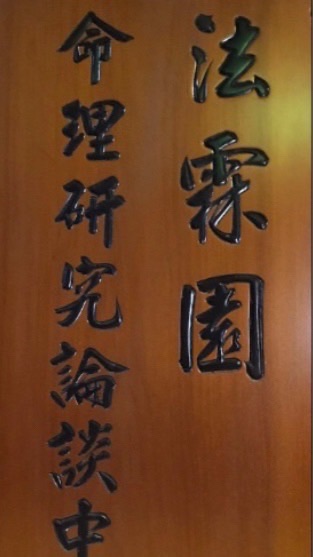 法霖園
命理研究論談中